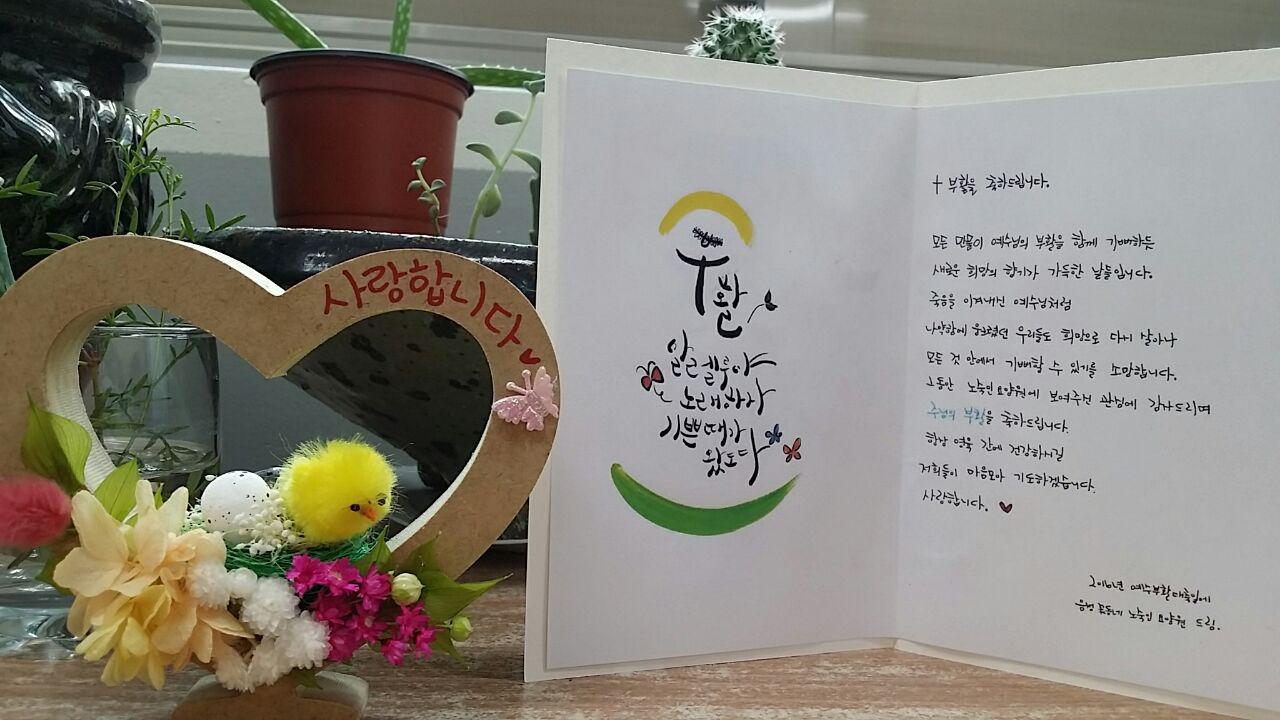 사랑합니다
부활
알렐루야
노래하자
기쁜때가
왔도다
부활을 축하드립니다.
모든 만물이 예수님의 부활을 함께 기뻐하는
새로운 희망의 향기가 가득한 날들입니다.
죽음을 이겨내신 예수님처럼
나약함에 움츠렸던 우리들도 희망으로 다시 살아나
모든 것 안에서 기뻐할 수 있기를 소망합니다.
그동안 노숙인요양원에 보여주신 관심에 감사드리며
주님의 부활을 축하드립니다.
항상 영육 간에 건강하시길
저희들이 마음모아 기도하겠습니다.
사랑합니다.
2016년 예수부활대축일에
음성 꽃동네 노숙인요양원 드림.